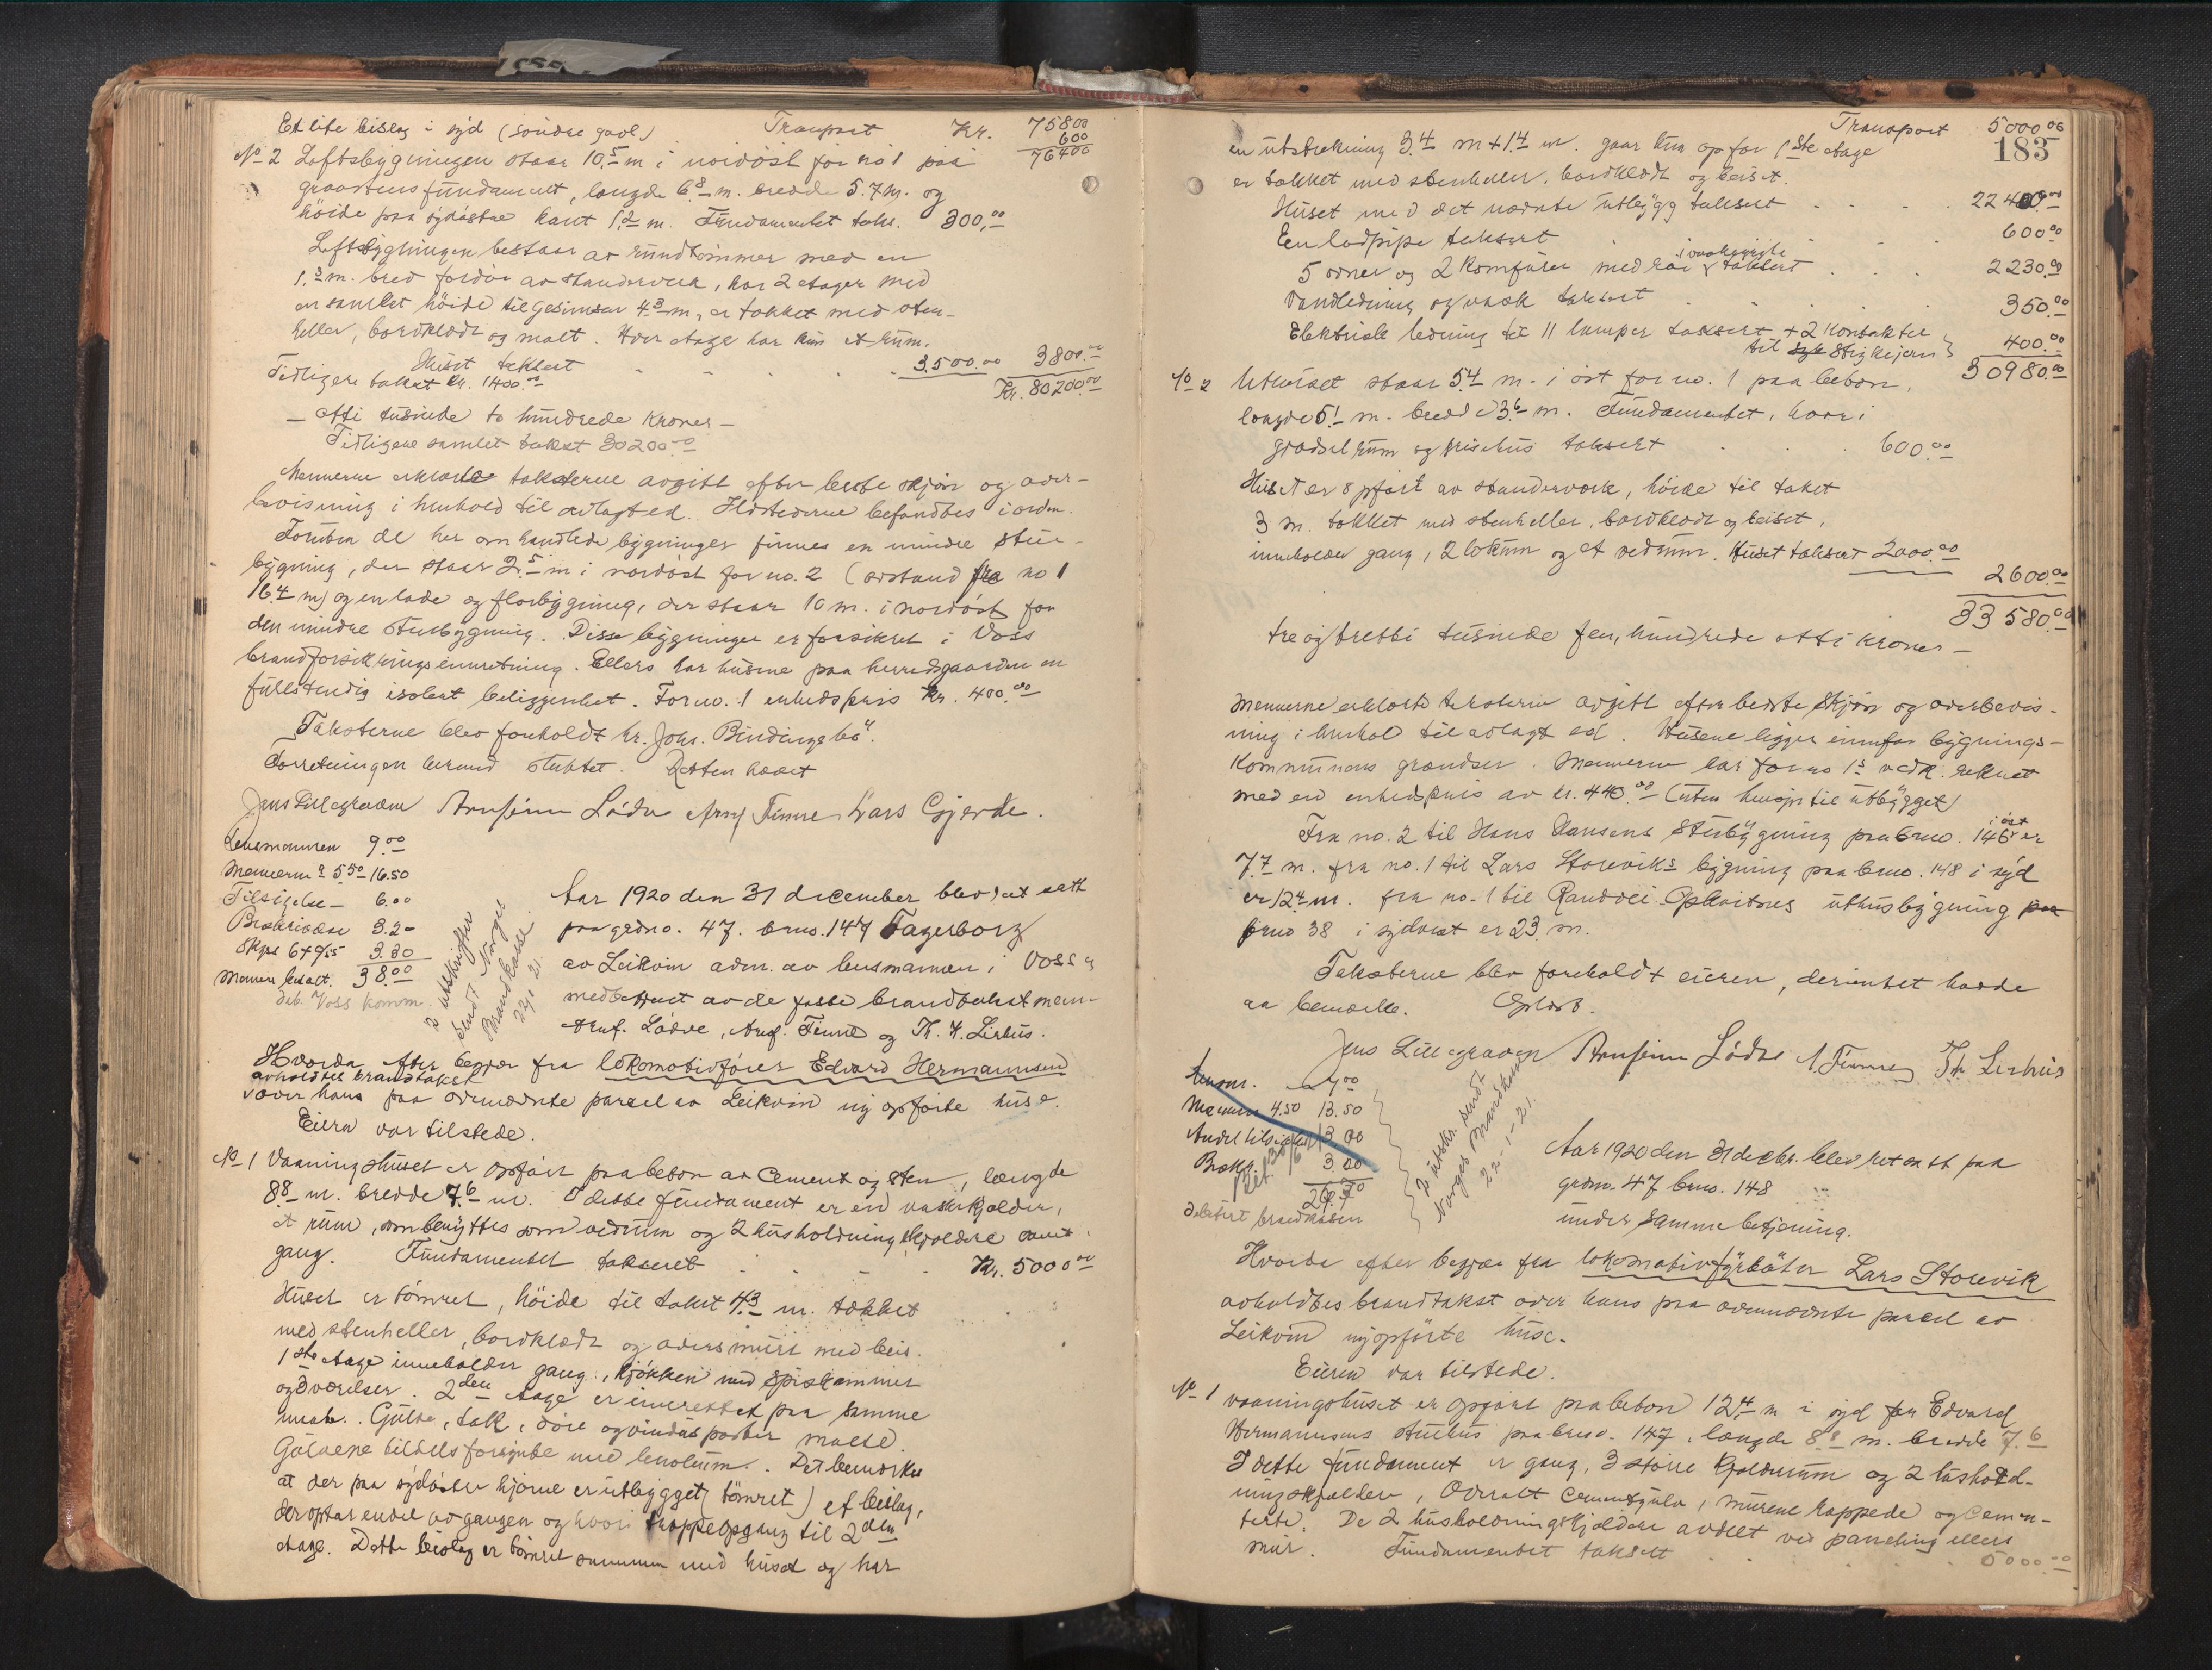 Et lite bislag i syd (søndre gavl) Transport Kr. 75800
600
76400
No 2 Loftsbygningen staar 10.5 m i nordøst for no 1 paa
graastensfundament, længde 6.8 m. bredde 5.7 m. og
høide paa sydøstre kant 1.2 m. Fundamentet taks. 300,00
Loftsbygningen bestaar av rundtømmer med en
1.3 m. bred fordør av standerverk, har 2 etager med
en samlet høide til gesimsen 4.3 m, er tækket med sten-
heller, bordklædt og malt. Hver etage har kun et rum.
Huset taksert 3.500.00 3800.00
Tidligere takst kr. 1400.00 Kr. 80200.00
– otti tusinde to hundrede kroner –
Tidligere samlet takst 30200.00
Mennerne erklærte taksterne avgitt efter beste skjøn og over-
bevisning i henhold til avlagt ed. Ildstederne befandtes i orden.
Foruten de her omhandlede bygninger finnes en mindre stue-
bygning, der staar 2.5 m i nordøst for no. 2 (avstand fra no 1
16.4 m) og en lade og florbygning, der staar 10 m. i nordøst for
den mindre stuebygning. Disse bygninger er forsikret i Voss
brandforsikringsinnretning. Ellers har husene paa herredsgaarden en
fullstendig isolert beliggenhet. For no. 1 enhedspris kr. 400.00
Taksterne blev foreholdt hr. Johs. Bindingsbø.
Forretningen herved sluttet. Retten hævet
Jens Lillegraven Arnfinn Lødve Arnf Finne Lars Gjerde.
Lensmannen 9.00
Mennerne à 5.50 16.50
Tilsigelse – 6.00
Beskrivelse 3.20
Skyss 6+9/55 3.30
Mannen betalt. 38.00
deb. Voss komm.
2 utskrifter
sendt Norges
Brandkasse
22/1 21.
Aar 1920 den 31 december blev ret satt
paa gardno. 47. bruno. 147 Fagerborg
av Leikvin adm. av lensmannen i Voss og
medbetjent av de faste brandtakstmenn
Arnf. Lødve, Arnf. Finne og Th. K. Lirhus.
Hvorda efter begjær fra lokomotivfører Edvard Hermannsen
avholdtes brandtakst
over hans paa overnævnte parcel av Leikvin ny opførte huse.
Eieren var tilstede.
No 1 Vaaningshuset er opført paa beton av cement og sten, længde
8.8 m. bredde 7.6 m. I dette fundament er en vaskekjelder,
et rum, som benyttes som vedrum og 2 husholdningskjeldere samt
gang. Fundamentet takseret Kr. 5000.00
Huset er tømret, høide til taket 4.3 m. tækket
med stenheller, bordklædt og oversmurt med beis.
1ste etage inneholder gang, kjøkken med spiskammer
og 3 værelser. 2den etage er innrettet paa samme
maate. Gulve, tak, døre og vindusposter malte.
Gulvene tildels forsynte med lenoleum. Det bemerkes
at der paa sydøstre hjørne er utbygget (tømret) et bislag,
der optar endel av gangen og hvori trappeopgang til 2den
etage. Dette bislag er tømret sammen med huset og har
Transport 5000 00
183
en utstrekning 3.4 m + 1.4 m. gaar kun op for 1ste etage
er tækket med stenheller, bordklædt og beiset.
Huset med det nævnte utbygg taksert 22400.00
En ladpipe taksert 600.00
5 ovner og 2 komfurer med rør taksert 2230.00
Vandledning og vask taksert 350.00
Elektrisk ledning til 11 lamper taksert + 2 kontakter
til strykejern 400.00
30980.00
No 2 Uthuset staar 5.4 m. i øst for no. 1 paa beton,
længde 5.1 m. bredde 3.6 m. Fundamentet, hvori
gjødselrum og grisehus taksert 600.00
Huset er opført av standerverk, høide til taket
3 m. tækket med stenheller, bordklædt og beiset,
inneholder gang, 2 lokum og et vedrum. Huset taksert 2000.00
2600.00
33580.00
tre og tretti tusinde fem hundrede otti kroner –
Mennerne erklærte taksterne avgitt efter bedste skjøn og overbevis-
ning i henhold til avlagt ed. Husene ligger innfor bygnings-
kommunens grændser. Mennerne har for no 1s vedk. reknet
med en enhedspris av kr. 440.00 (uten hensyn til utbygget)
Fra no. 2 til Hans Hansens stuebygning paa bruno. 146 i øst er
7.7 m. fra no. 1 til Lars Storeviks bygning paa bruno. 148 i syd
er 12.4 m. fra no. 1 til Randvei Opheitnes uthusbygning paa
bruno 38 i sydvest er 23. m.
Taksterne blev foreholdt eieren, der intet hadde
aa bemerke. Oplæst.
Jens Lillegraven Arnfinn Lødve A. Finne Th Lirhus
Lensm. 7.00
Mennene 4.50 13.50
Andel tilsigelse 3.00
Beskr. 3.20
26.70
Debitert brandkassen
2 utskr. sendt
Norges Brandkasse
22-1-21.
Aar 1920 den 31 decbr. blev ret satt paa
grdno. 47 bruno. 148
under samme betjening.
Hvorda efter begjær fra lokomotivfyrbøter Lars Storevik
avholdtes brandtakst over hans paa overnævnte parcel av
Leikvin nyopførte huse.
Eieren var tilstede.
No 1 vaaningshuset er opført paa beton 12.4 m i syd for Edvard
Hermannsens stuehus paa bruno. 147, længde 8.8 m. bredde 7.6
I dette fundament er gang, 3 større kjelderrum og 2 hushold-
ningskjeldere, Overalt cementgulv, murene kappede og cemen-
terte. De 2 husholdningskjeldere avdelt ved paneling ellers
mur. Fundamentet taksert 5000.00